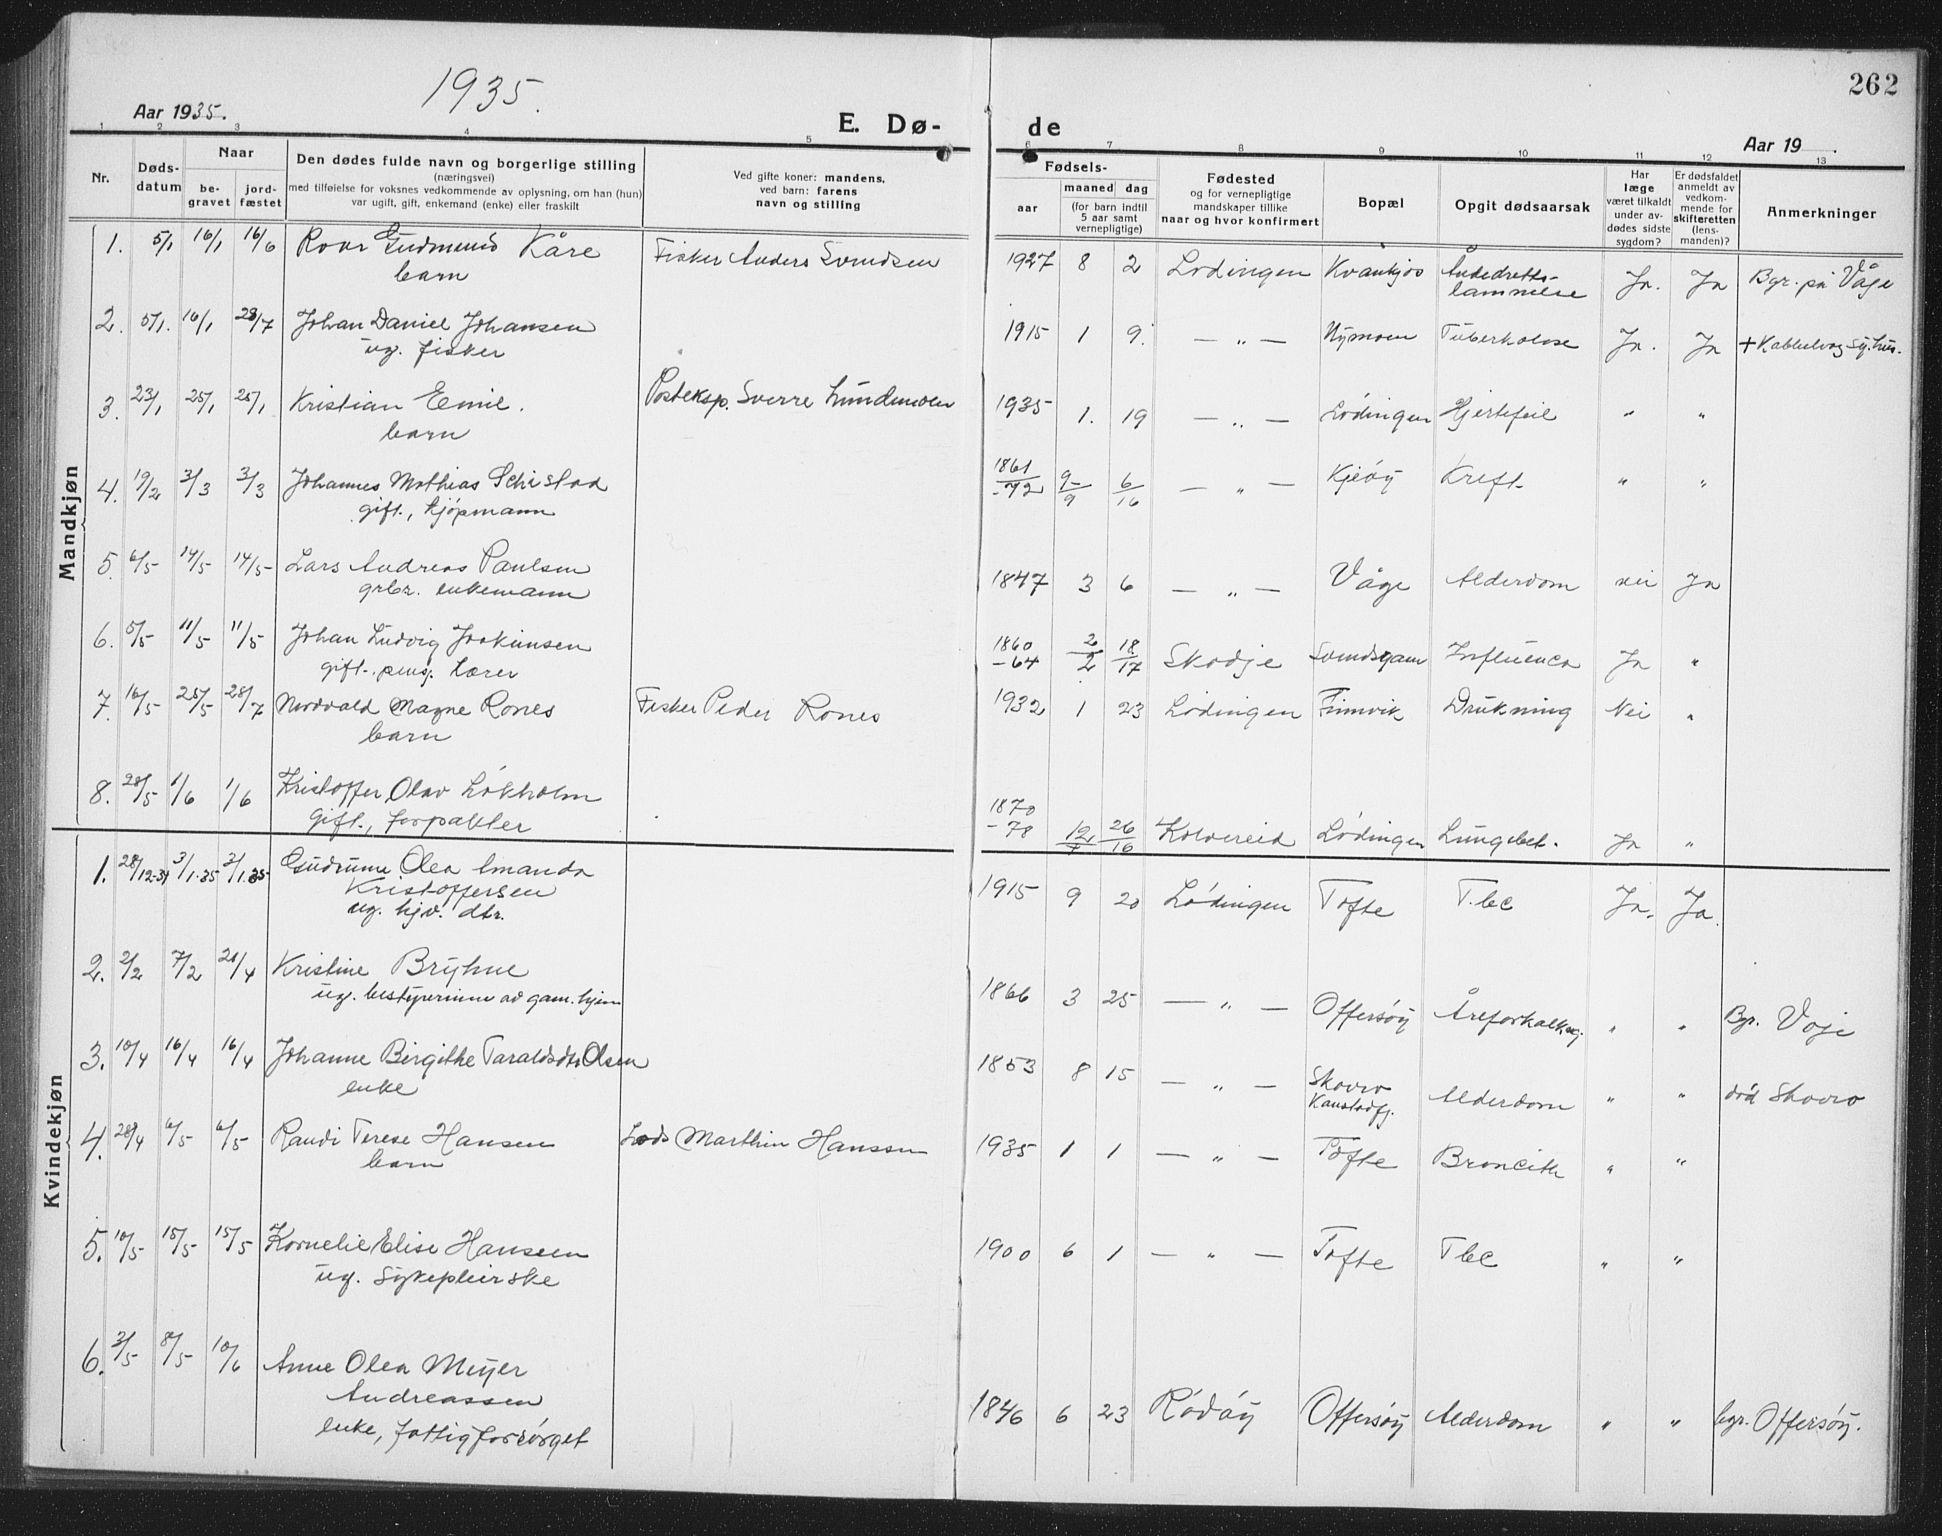 1935.
262
Aar 1935.
E. Dø-
de
Aar 19 .
1 2 3 4 5 6 7 8 9 10 11 12 13
Nr.
Døds-
datum
Naar
be-
gravet
jord-
fæstet
Den dødes fulde navn og borgerlige stilling
(næringsvei)
med tilføielse for voksnes vedkommende av oplysning, om han (hun)
var ugift, gift, enkemand (enke) eller fraskilt
Ved gifte koner: mandens,
ved barn: farens
navn og stilling
Fødsels-
aar
maaned dag
(for barn indtil
5 aar samt
vernepligtige)
Fødested
og for vernepligtige
mandskaper tillike
naar og hvor konfirmert
Bopæl
Opgit dødsaarsak
Har
læge
været tilkaldt
under av-
dødes sidste
sygdom?
Er dødsfaldet
anmeldt av
vedkom-
mende for
skifteretten
(lens-
manden)?
Anmerkninger
Mandkjøn
1. 5/1 16/1 16/6 Roar Gudmund Kåre Fisker Anders Svendsen 1927 8 2 Lødingen Kvankjos Åndedretts- Ja. Ja Bgr. på Våje
barn lammelse
2. 5/1. 16/1 28/7 Johan Daniel Johansen 1915 1 9. — „ — Nymoen Tuberkolose Ja. Ja + Kabbelvåg syhus.
ug. fisker
3. 23/1 25/1 25/1 Kristian Emil. Posteksp. Sverre Lundemoen 1935 1. 19 — „ — Lødingen Hjertefeil „ „
barn
4. 19/2 3/3 3/3 Johannes Mathias Schistad 1861 -72 9/9 6/16 — „ — Kjeøy Kreft „ „
gift., kjøpmann
5 6/5 14/5 14/5 Lars Andreas Paulsen 1847 3 6 — „ — Våge Alderdom nei Ja
grbr. enkemann
6. 5/5 11/5 11/5 Johan Ludvig Joakimsen 1860 -64 2/2 18/17 Skodje Svendsgam Influenca Ja „
gift. pens. lærer
7. 16/5 25/5 28/7 Nordvald Magne Rones Fisker Peder Rones 1932 1 23 Lødingen Finnvik Drukning Nei „
barn
8. 28/5 1/6 1/6 Kristoffer Olav Løkholm 1870 -78 12/7 26/16 Kolvereid Lødingen Lungebet. Ja „
gift., forpakter
Kvindekjøn
1. 28/12-34 3/1.35 3/1.35 Gudrunn Olea Amanda 1915 9 20 Lødingen Tofte T.bc Ja. Ja.
Kristoffersen
ug. hjv. dtr.
2. 2/2 7/2 21/4 Kristine Bryhne 1866 3 25 — „ — Offersøy Åreforkalkng. „ „ Bgr. Våje
ug. bestyrerinne av gam. hjem
3. 10/4 16/4 16/4 Johanne Birgithe Taraldsdtr Olsen 1853 8 15 — „ — Skovro Alderdom „ „ død Skovro
enke Kanstadfj.
4. 28/4 6/5 6/5 Randi Terese Hansen Lods Marthin Hanssen 1935 1 1 — „ — Tofte Broncitt „ „
barn
5. 10/5 15/5 15/5 Kornelie Elise Hansen 1900 6 1 — „ — Tofte Tbc „ „
ug. sykepleierske
6. 3/5 8/5 10/6 Anne Olea Meyer 1846 6 23 Rødøy Offersøy Alderdom „ „ bgr. Offersøy.
Andreassen
enke, fattigforsørget